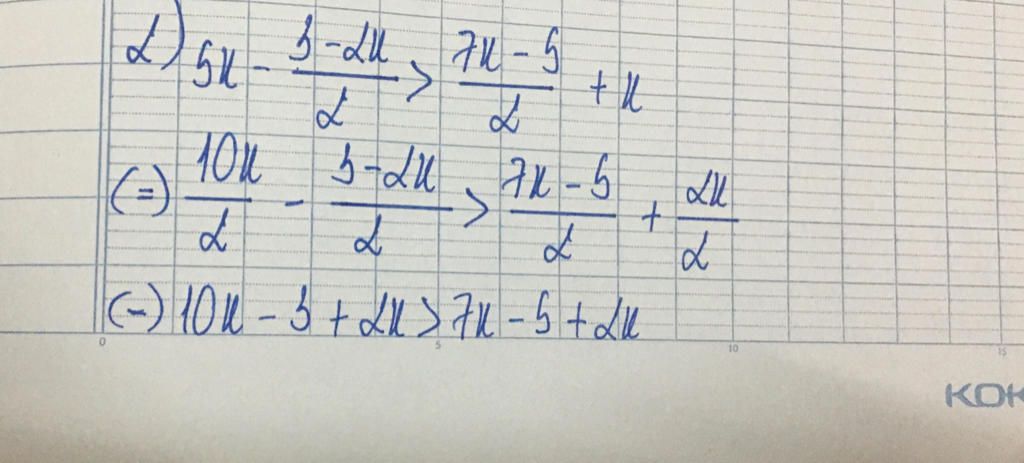 2) 5x - \frac{3-2x}{2} > \frac{7x-5}{2} + x
(=) \frac{10x}{2} - \frac{3-2x}{2} > \frac{7x-5}{2} + \frac{2x}{2}
(-) 10x - 3 + 2x > 7x - 5 + 2x
0 5 10 15
KOK